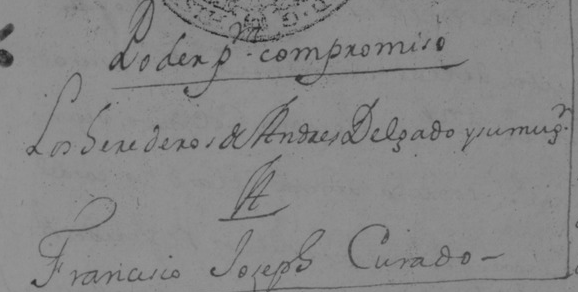 Poder p.ra compromiso
Los herederos de Andres Delgado y su mug.r
A
Francisco Joseph Curado